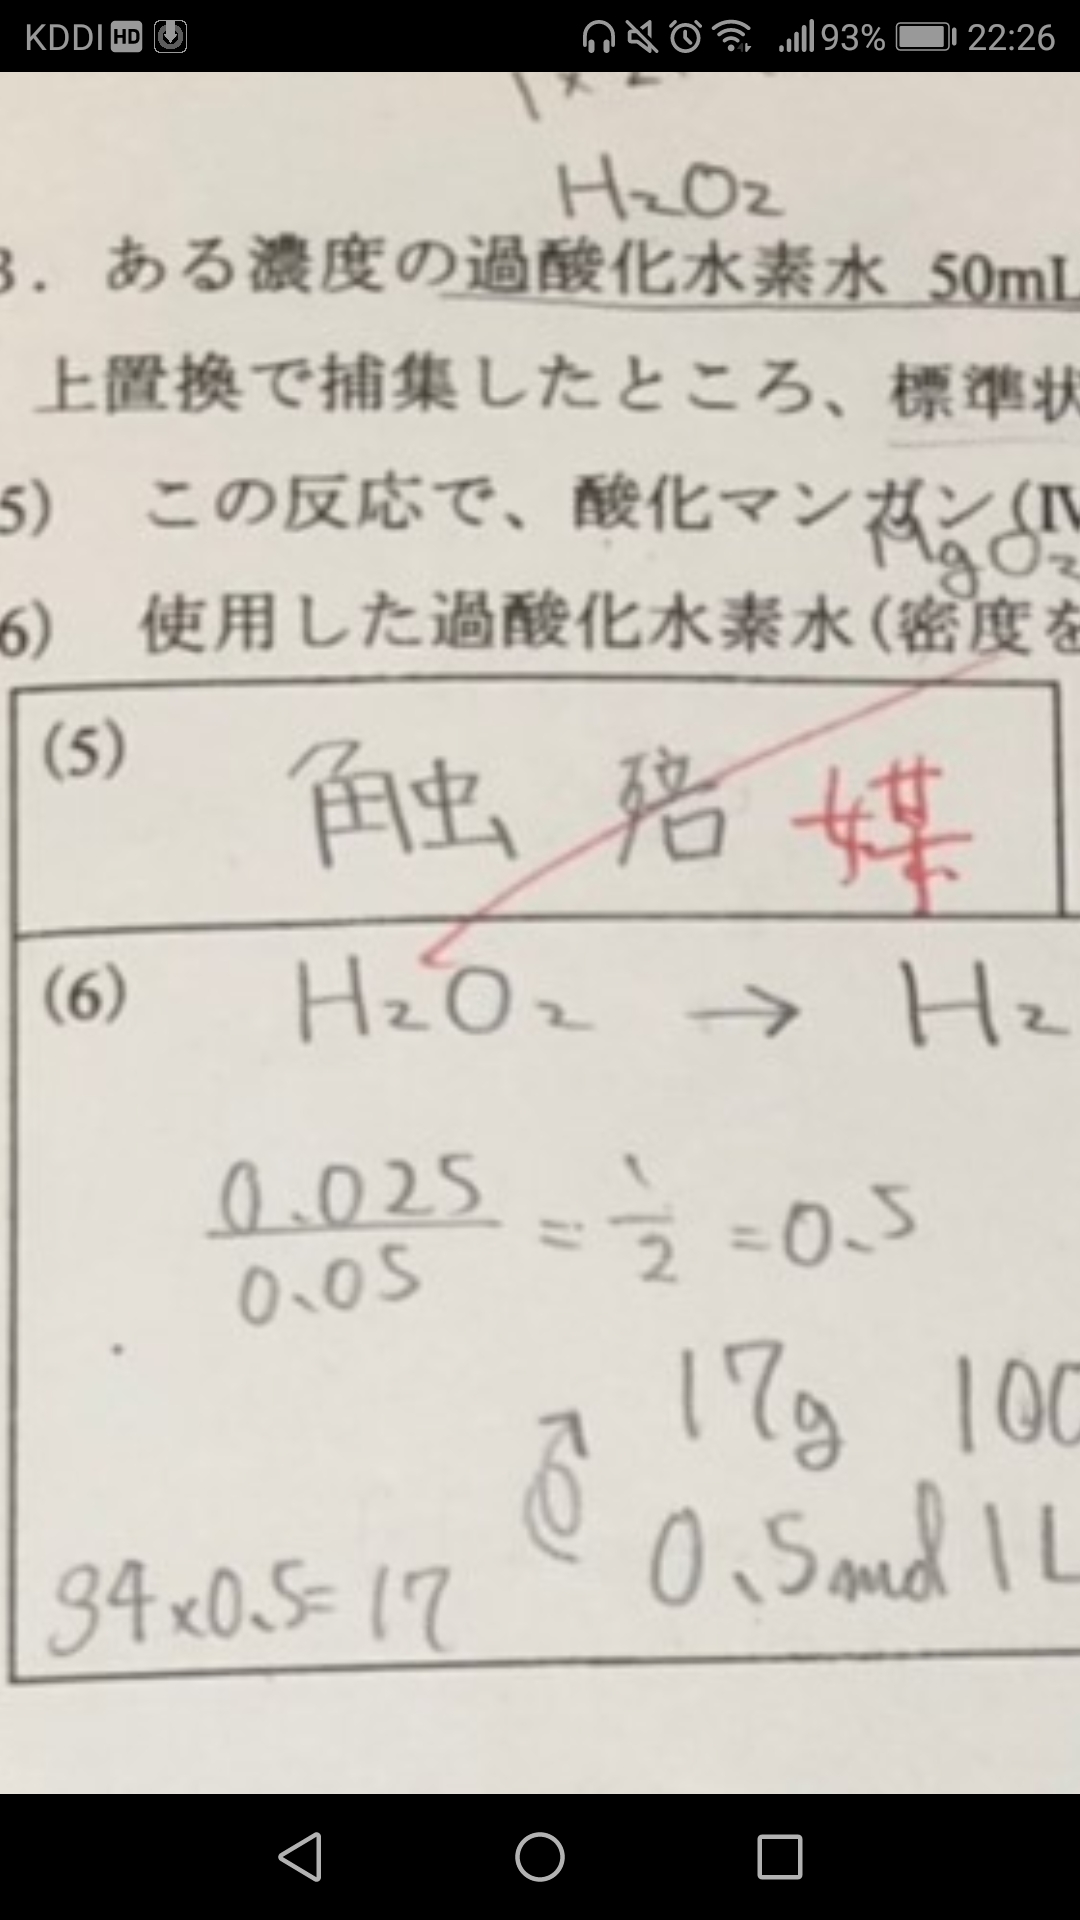 KDDI HD 93% 22:26
H₂O₂
3. ある濃度の過酸化水素水 50mL
上置換で捕集したところ、標準状
5) この反応で、酸化マンガン(Ⅳ
MgO₂
6) 使用した過酸化水素水(密度を
(5) 触 媒
(6) H₂O₂ → H₂
0.025/0.05 = 1/2 = 0.5
17g 100
0.5mol 1L
34×0.5=17